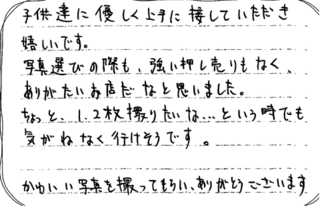 子供達に優しく上手に接していただき
嬉しいです。
写真選びの際も、強い押し売りもなく、
ありがたいお店だなと思いました。
ちょっと、1、2枚撮りたいな…という時でも
気がねなく行けそうです。
かわいい写真を撮ってもらい、ありがとうございます